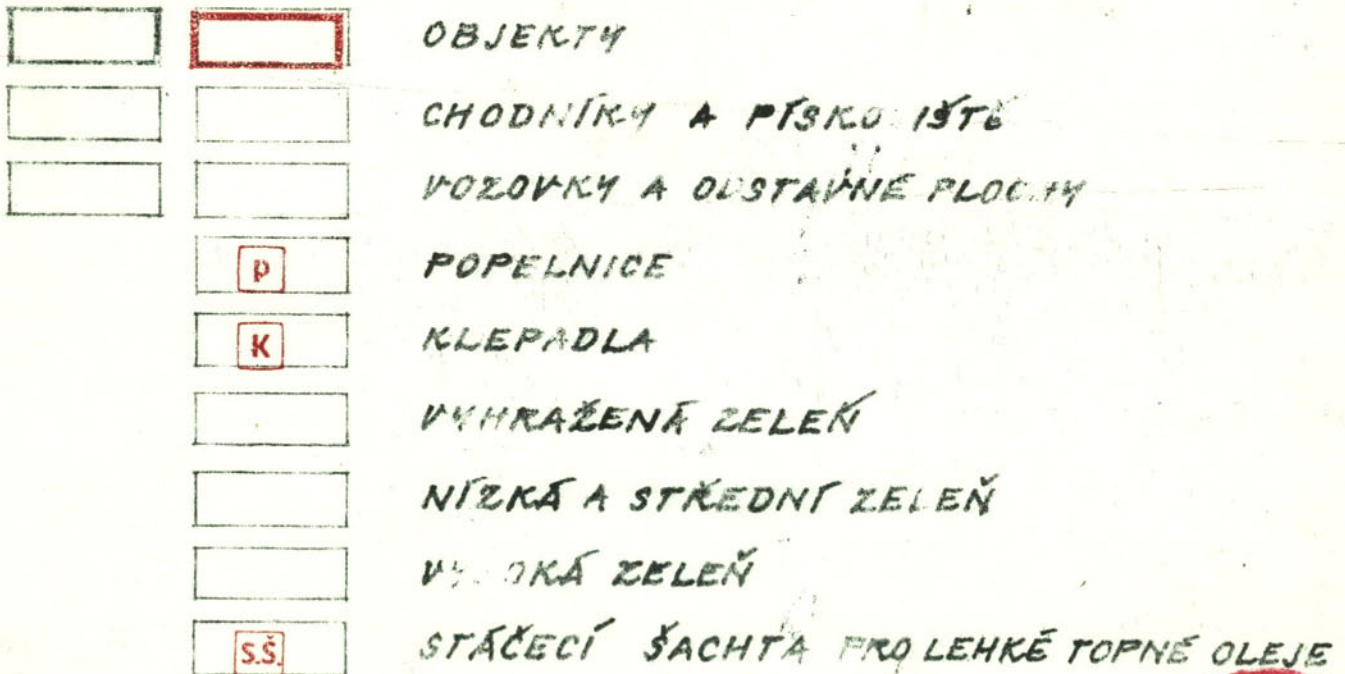 OBJEKTY
CHODNÍKY A PÍSKOVIŠTĚ
VOZOVKY A ODSTAVNÉ PLOCHY
P POPELNICE
K KLEPADLA
VYHRAŽENÁ ZELEŇ
NÍZKÁ A STŘEDNÍ ZELEŇ
VYSOKÁ ZELEŇ
S.Š. STÁČECÍ ŠACHTA PRO LEHKÉ TOPNÉ OLEJE